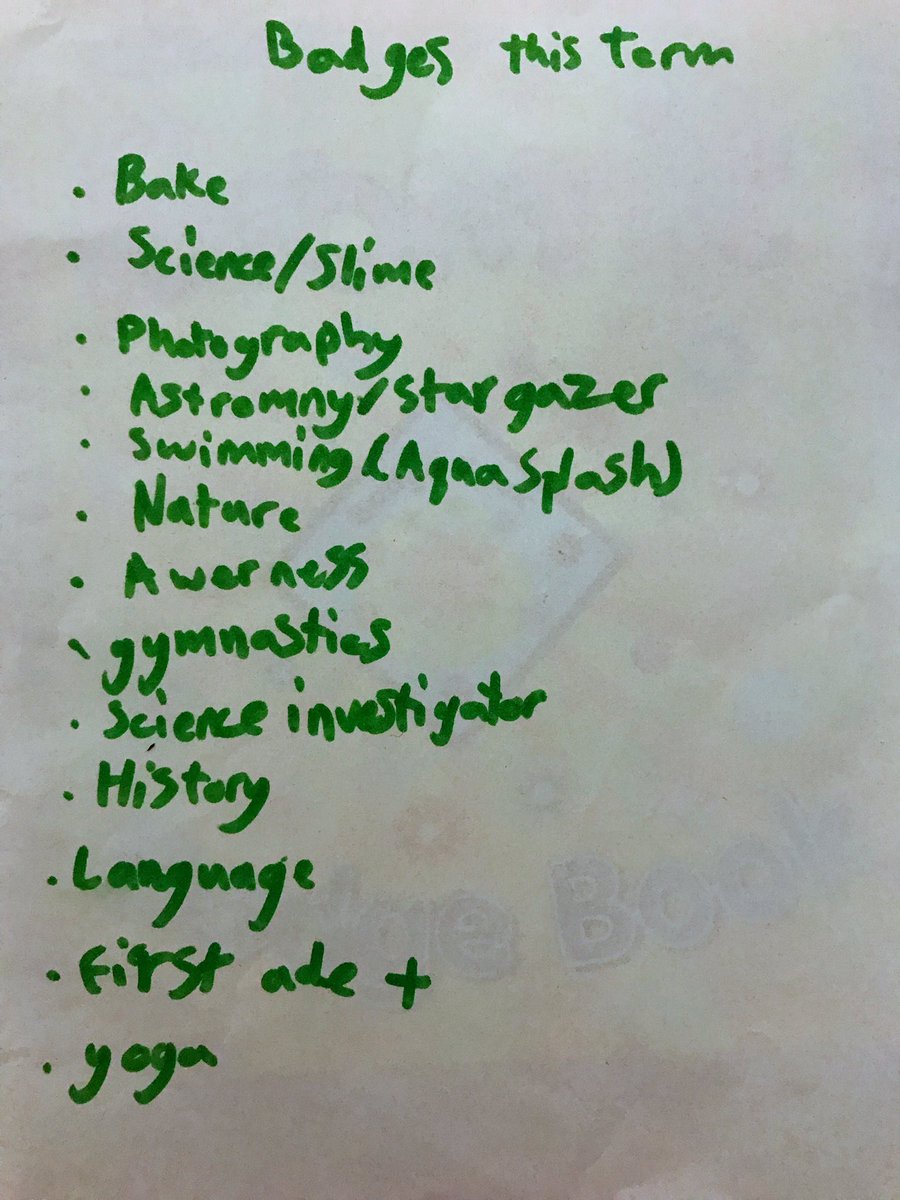 Badges this term
. Bake
. Science/Slime
. Photography
. Astromny/stargazer
. Swimming (Aqua Splash)
. Nature
. Awerness
. gymnastics
. Science investigator
. History
. Language
. First ade +
. yoga
Book